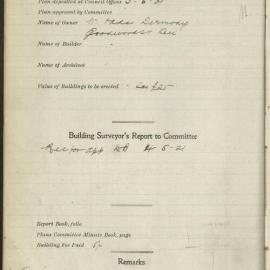 Plan deposited at Council Offices 3-6-21
Plan approved by Committee
Name of Owner Dermody
Goodwood
Name of Builder
Name of Architect
Value of Buildings to be erected £25
Building Surveyor's Report to Committee
Rec for app 4-6-21
Report Book, folio
Plans Committee Minute Book, page
Building Fee Paid 5/-
Remarks